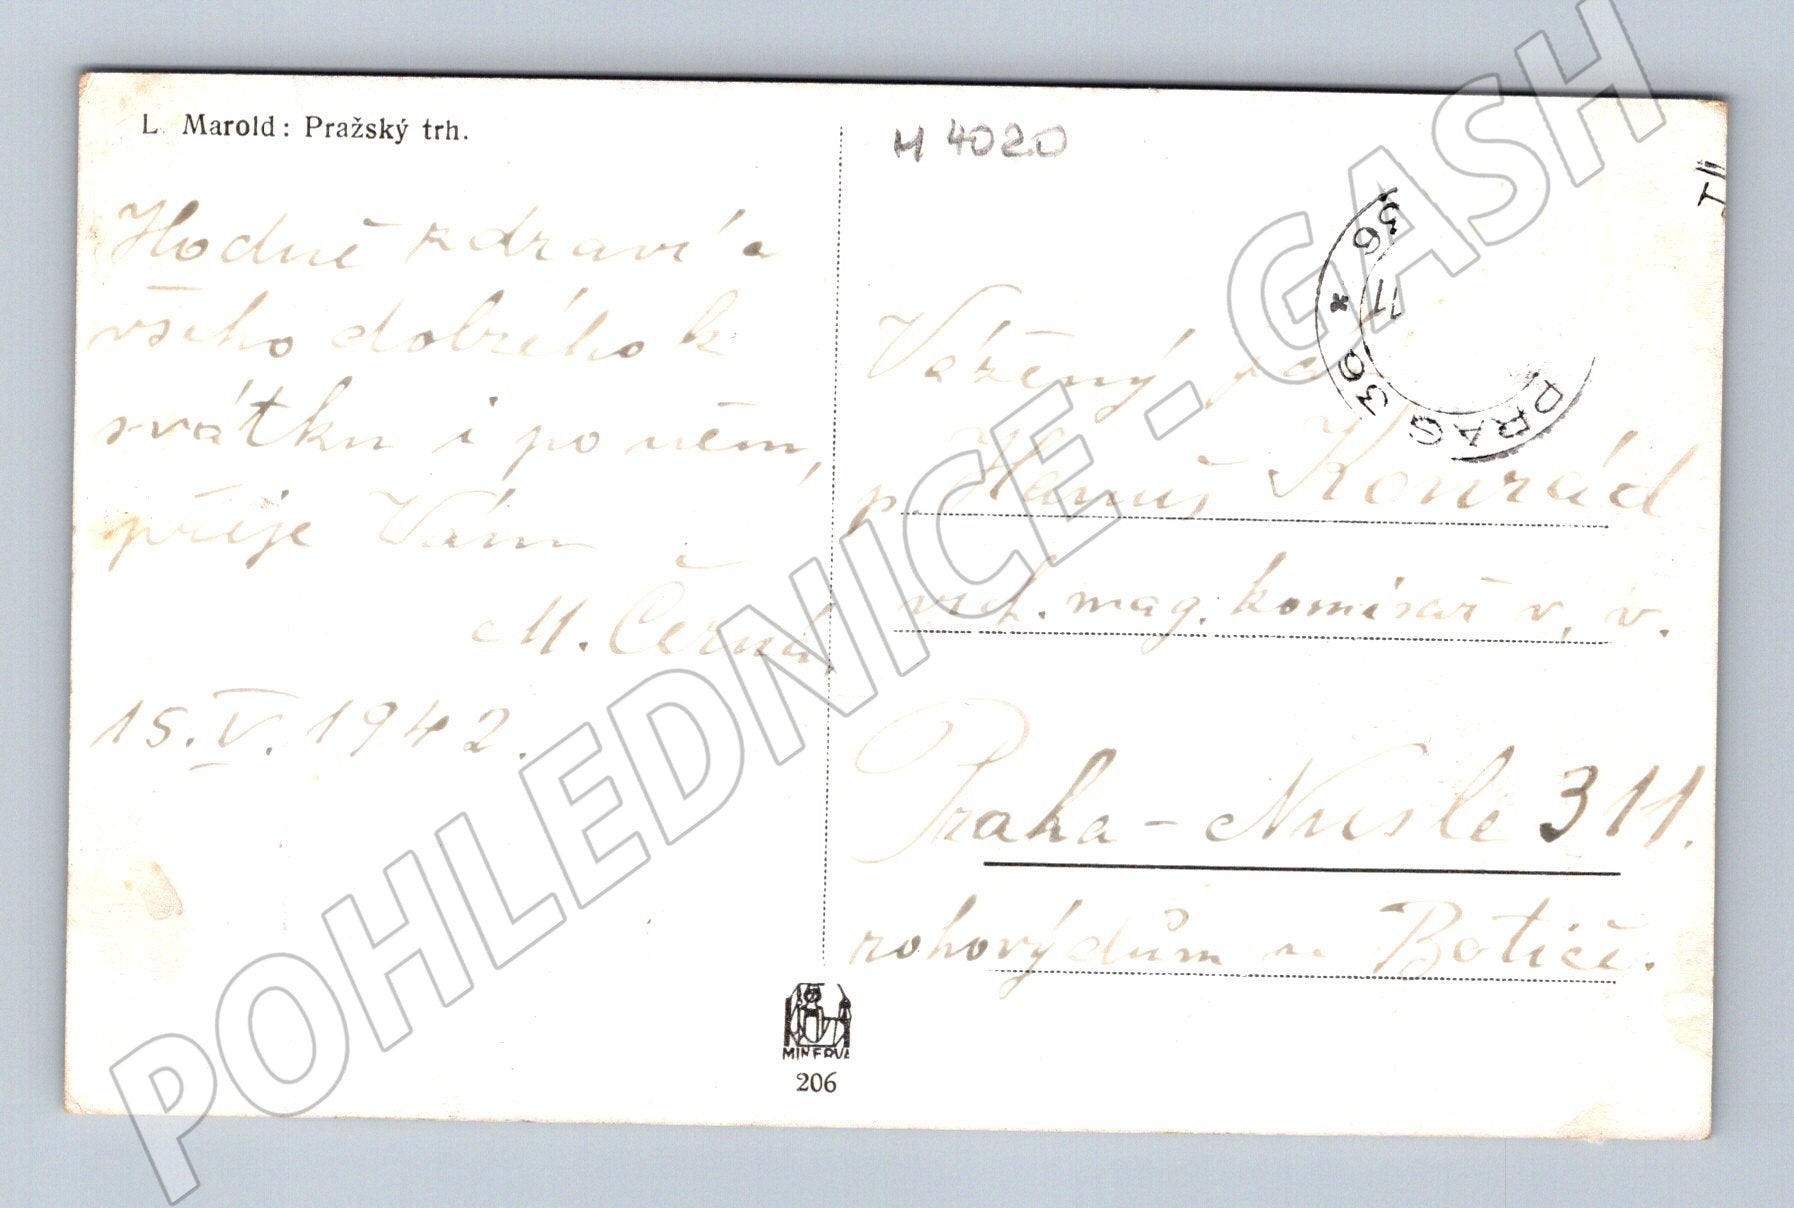 L. Marold: Pražský trh.
M 4020
Hodně zdraví a
všeho dobrého k
svátku i po něm,
přeje Vám
M. Černá
15. V. 1942.
PRAG 36 * 36
Vážený pan
p. Hanuš Konrád
vrch. mag. komisař v. v.
Praha - Nusle 311.
rohový dům na Botiči.
MINERVA
206
POHLEDNICE - GASH